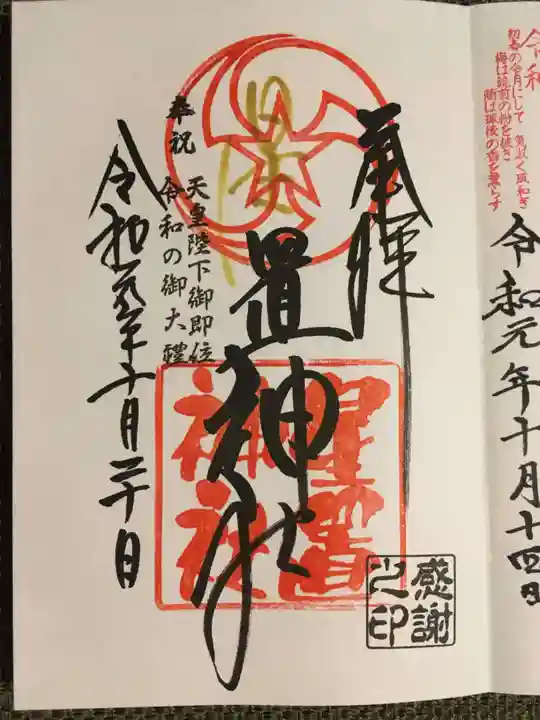 令和
初春の令月にして 気淑く風和ぎ
梅は鏡前の粉を披き
蘭は珮後の香を薫らす
令和元年十月十四日
奉拝
置神社
星置
神社
奉祝 天皇陛下御即位
令和の御大禮
令和元年十月二十日
感謝
之印